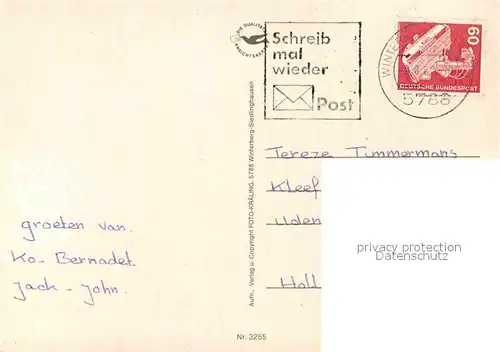 EINE QUALITÄTS
ANSICHTSKARTE
Schreib
mal
wieder
Post
WINTERB
5788
60
DEUTSCHE BUNDESPOST
Tereze Timmermans
Kleef
Uden
Holl
groeten van.
Ko - Bernadet
Jack - John.
Aufn., Verlag u. Copyright FOTO-KRÄLING, 5788 Winterberg-Siedlinghausen
Nr. 3255
privacy protection
Datenschutz